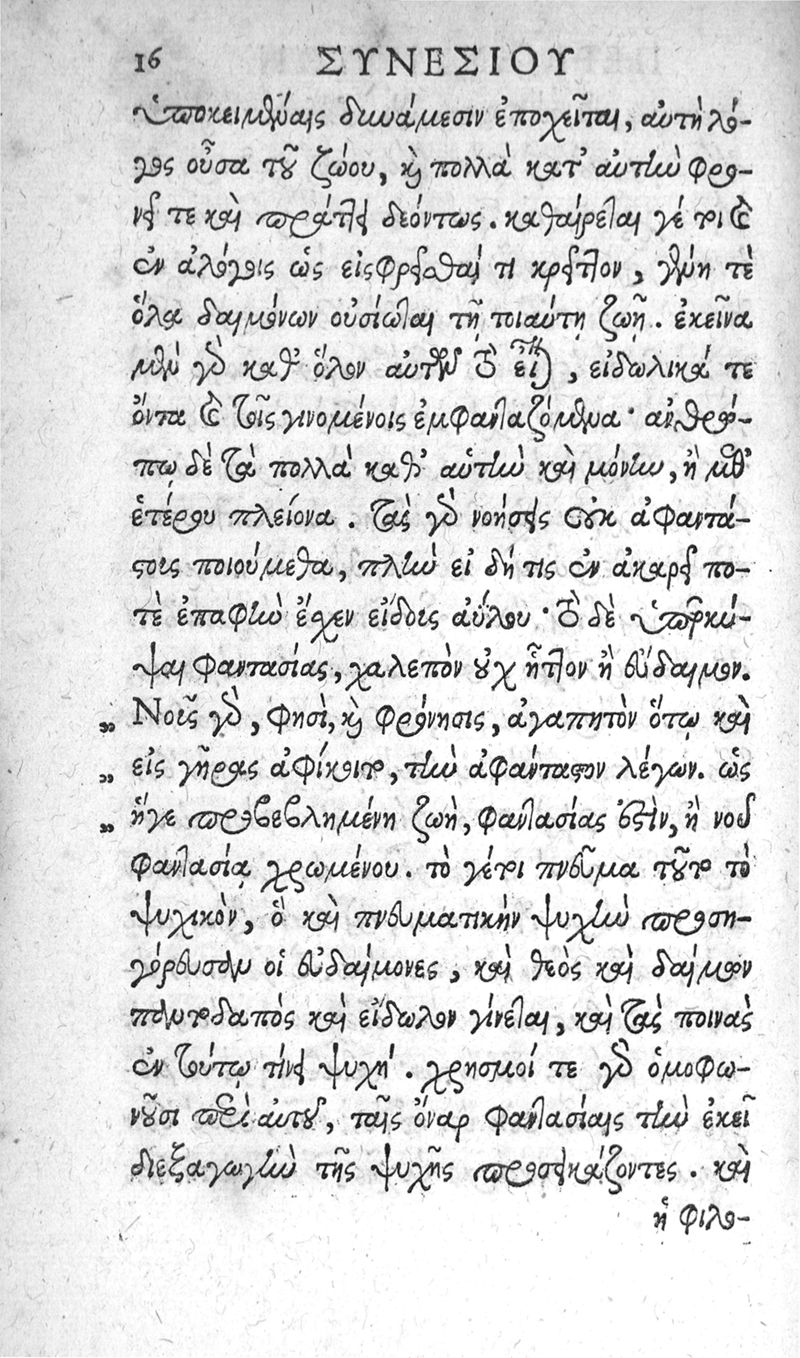 16 ΣΥΝΕΣΙΟΥ
ὑποκειμέναις δυνάμεσιν ἐποχεῖται, αὐτὴ λό-
γος οὖσα τοῦ ζώου, καὶ πολλὰ κατ' αὐτὴν φρο-
νεῖ τε καὶ πράττει δεόντως. καθαίρεται γέ τοι καὶ
ἐν ἀλόγοις ὡς εἰσφρεῖσθαί τι κρεῖττον, γένη τὲ
ὅλα δαιμόνων οὐσίωται τῇ τοιαύτῃ ζωῇ. ἐκεῖνα
μὲν γὰρ καθ' ὅλον αὐτῶν τὸ εἶναι, εἰδωλικά τε
ὄντα καὶ τοῖς γινομένοις ἐμφανταζόμενα· ἀνθρώ-
πῳ δὲ τὰ πολλὰ καθ' αὑτὴν καὶ μόνην, ἢ μεθ'
ἑτέρου πλείονα. τὰς γὰρ νοήσεις οὐκ ἀφαντά-
στοις ποιούμεθα, πλὴν εἰ δή τις ἐν ἀκαρεῖ πο-
τὲ ἐπαφὴν ἔσχεν εἴδοις ἀΰλου· τὸ δὲ ὑπερκύ-
ψαι φαντασίας, χαλεπὸν οὐχ ἧττον ἢ εὔδαιμον.
„ Νοῦς γὰρ, φησὶ, καὶ φρόνησις, ἀγαπητὸν ὅτῳ καὶ
„ εἰς γῆρας ἀφίκοιτο, τὴν ἀφάνταστον λέγων. ὡς
„ ἥγε προβεβλημένη ζωὴ, φαντασίας ἐστὶν, ἢ νοῦ
φαντασίᾳ χρωμένου. τὸ γέτοι πνεῦμα τοῦτο τὸ
ψυχικὸν, ὃ καὶ πνευματικὴν ψυχὴν προση-
γόρευσαν οἱ εὐδαίμονες, καὶ θεὸς καὶ δαίμων
παντοδαπὸς καὶ εἴδωλον γίνεται, καὶ τὰς ποινὰς
ἐν τούτῳ τίνει ψυχή. χρησμοί τε γὰρ ὁμοφω-
νοῦσι περὶ αὐτοῦ, ταῖς ὄναρ φαντασίαις τὴν ἐκεῖ
διεξαγωγὴν τῆς ψυχῆς προσεικάζοντες. καὶ
ἡ φιλο-